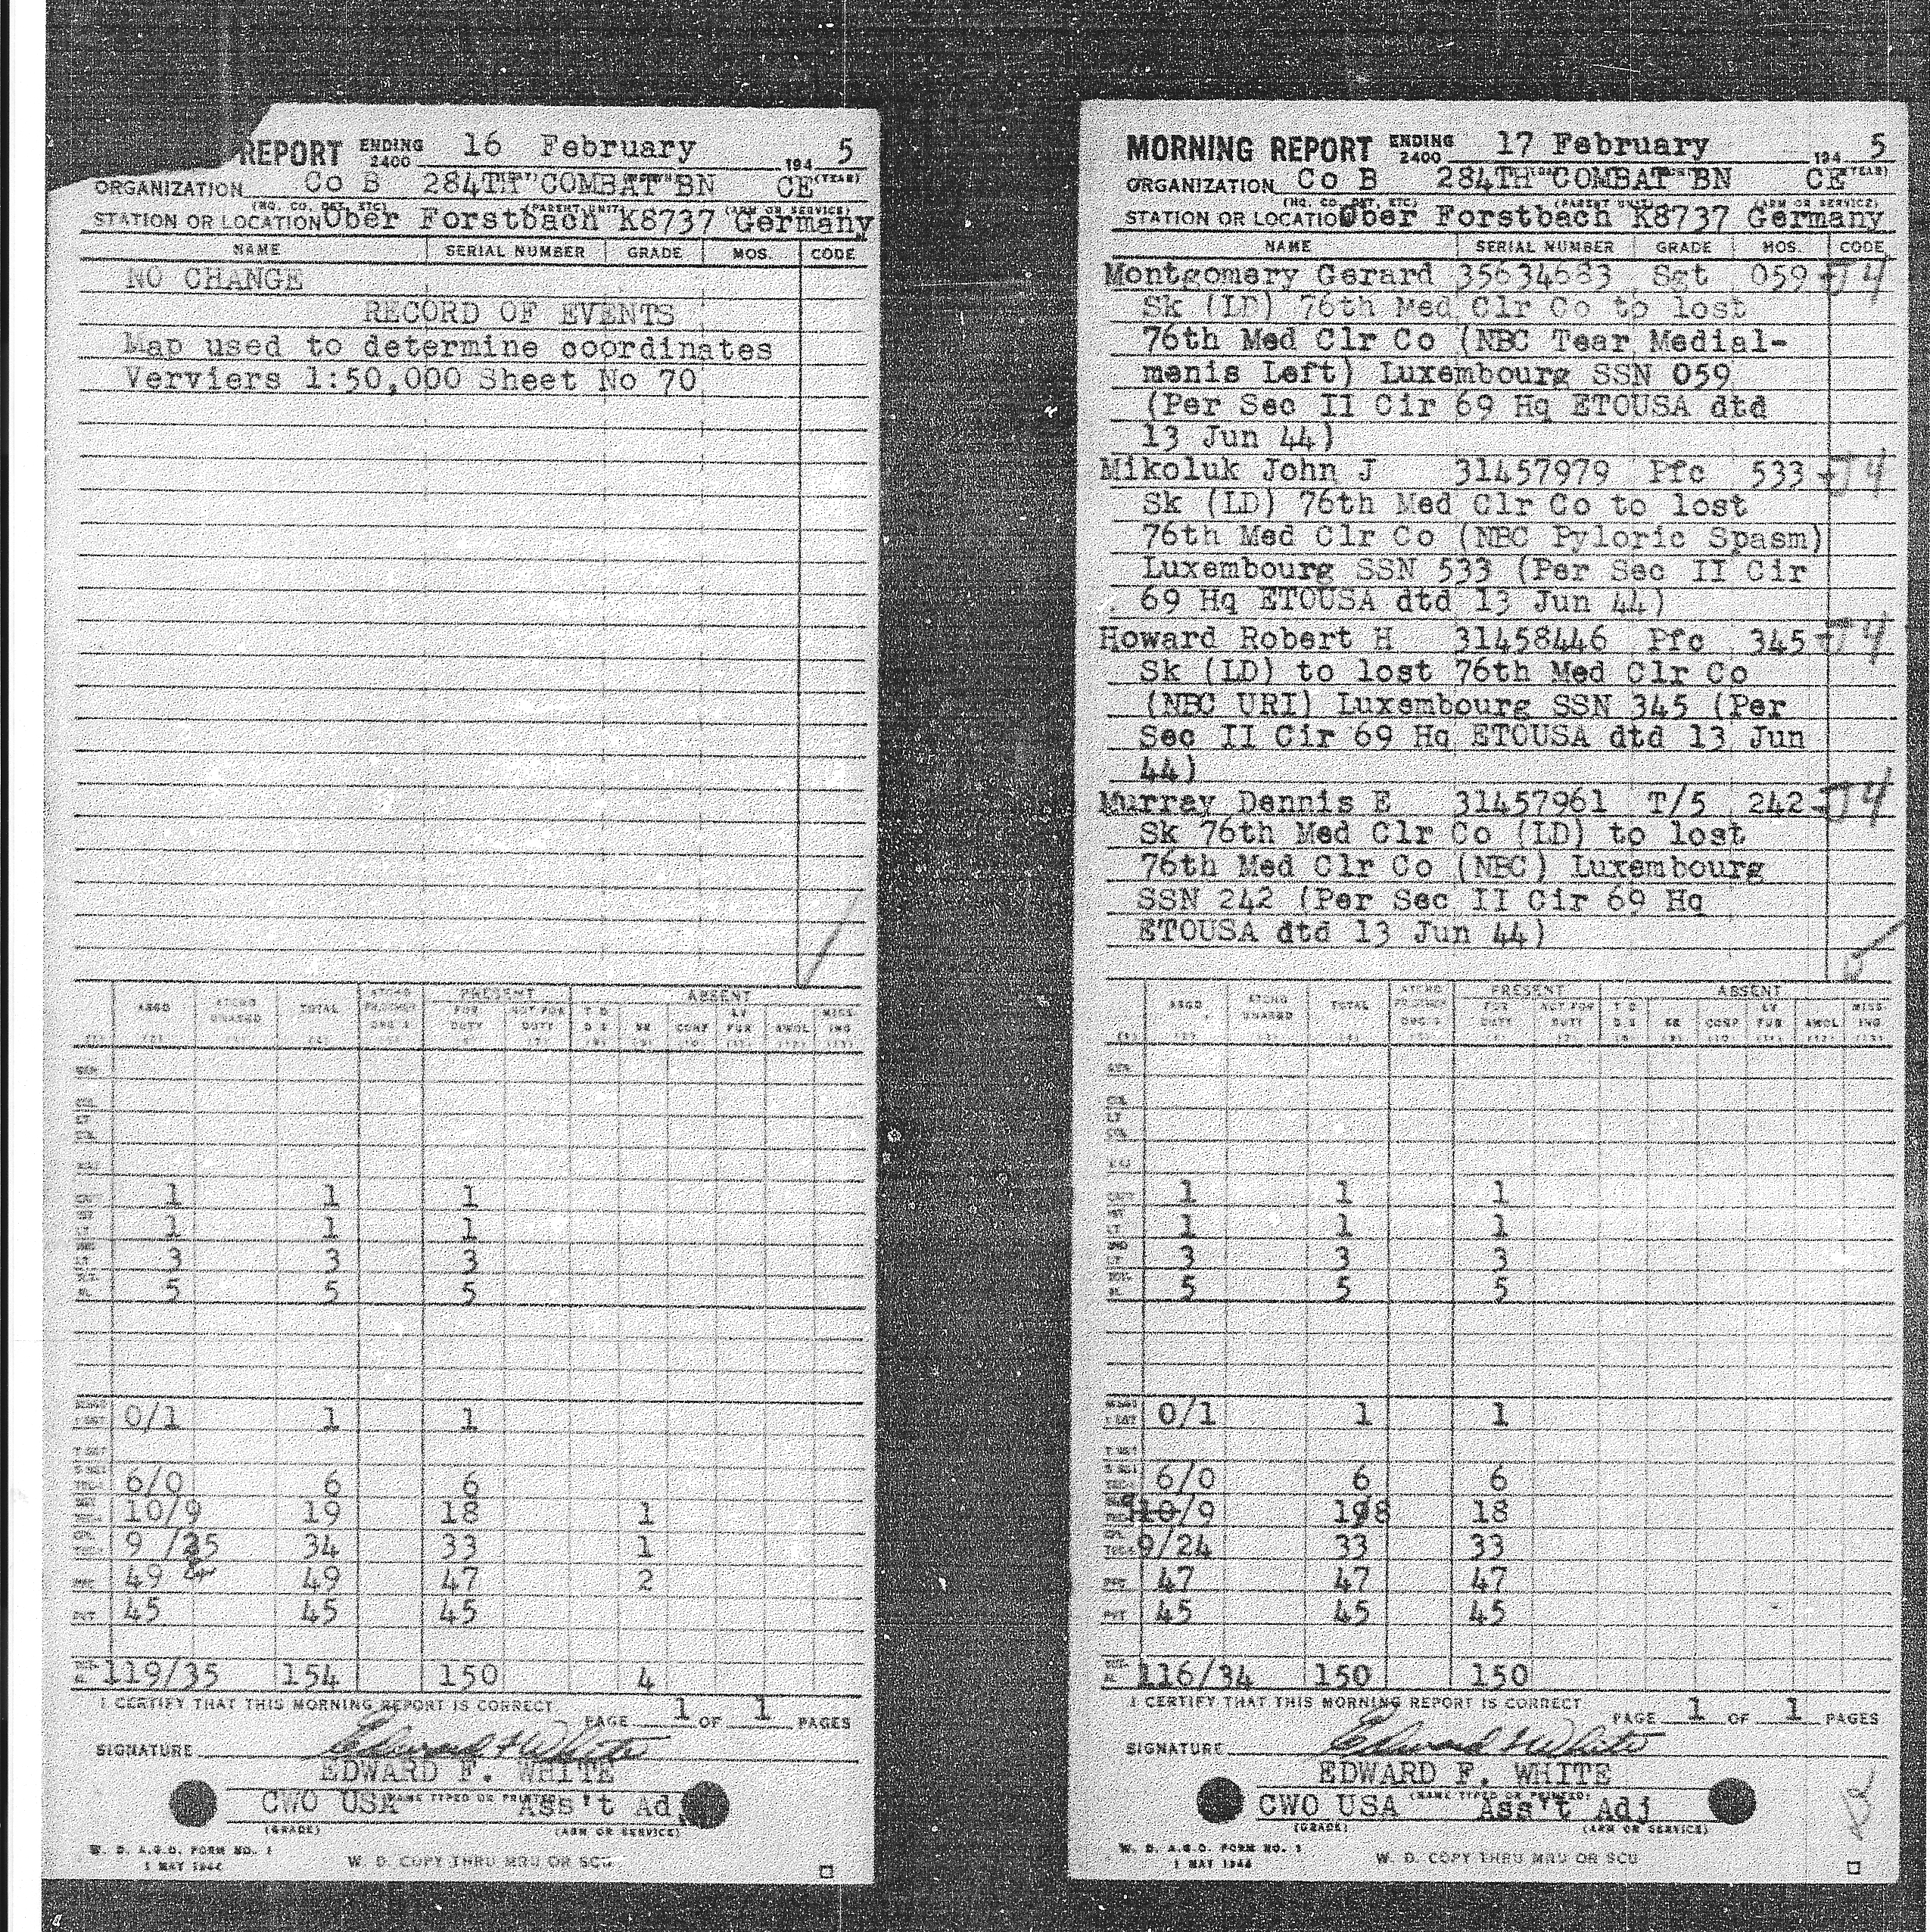 REPORT ENDING 2400 16 February 194 5
ORGANIZATION Co B 284TH COMBAT BN CE (YEAR)
(HQ. CO. DET. ETC) (PARENT UNIT) (ARM OR SERVICE)
STATION OR LOCATION Ober Forstbach K8737 Germany
NAME SERIAL NUMBER GRADE MOS. CODE
NO CHANGE
RECORD OF EVENTS
Map used to determine coordinates
Verviers 1:50,000 Sheet No 70
ASGD ATCHD UNASGD TOTAL ATCHD FR OTHER ORG'S PRESENT FOR DUTY NOT FOR DUTY ABSENT T D D S SK CONF LV FUR AWOL MISS-ING
1 1 1
1 1 1
3 3 3
5 5 5
0/1 1 1
6/0 6 6
10/9 19 18 1
9 /25 34 33 1
49 49 47 2
PVT 45 45 45
119/35 154 150 4
I CERTIFY THAT THIS MORNING REPORT IS CORRECT
PAGE 1 OF 1 PAGES
SIGNATURE Edward F White
EDWARD F. WHITE
(NAME TYPED OR PRINTED)
CWO USA Ass't Adj
(GRADE) (ARM OR SERVICE)
W. D. A.G.O. FORM NO. 1
1 MAY 1944
W. D. COPY THRU MRU OR SCU
MORNING REPORT ENDING 2400 17 February 194 5
ORGANIZATION Co B 284TH COMBAT BN CE (YEAR)
(HQ. CO. DET. ETC) (PARENT UNIT) (ARM OR SERVICE)
STATION OR LOCATIO Ober Forstbach K8737 Germany
NAME SERIAL NUMBER GRADE MOS. CODE
Montgomery Gerard 35634683 Sgt 059 - J4
Sk (LD) 76th Med Clr Co to lost
76th Med Clr Co (NBC Tear Medial-
menis Left) Luxembourg SSN 059
(Per Sec II Cir 69 Hq ETOUSA dtd
13 Jun 44)
Mikoluk John J 31457979 Pfc 533 - J4
Sk (LD) 76th Med Clr Co to lost
76th Med Clr Co (NBC Pyloric Spasm)
Luxembourg SSN 533 (Per Sec II Cir
69 Hq ETOUSA dtd 13 Jun 44)
Howard Robert H 31458446 Pfc 345 - J4
Sk (LD) to lost 76th Med Clr Co
(NBC URI) Luxembourg SSN 345 (Per
Sec II Cir 69 Hq ETOUSA dtd 13 Jun
44)
Murray Dennis E 31457961 T/5 242 - J4
Sk 76th Med Clr Co (LD) to lost
76th Med Clr Co (NBC) Luxembourg
SSN 242 (Per Sec II Cir 69 Hq
ETOUSA dtd 13 Jun 44)
ASGD ATCHD UNASGD TOTAL ATCHD FR OTHER ORG'S PRESENT FOR DUTY NOT FOR DUTY ABSENT T D D S SK CONF LV FUR AWOL MISS-ING
1 1 1
1 1 1
3 3 3
5 5 5
0/1 1 1
6/0 6 6
10/9 198 18
9/24 33 33
47 47 47
PVT 45 45 45
116/34 150 150
I CERTIFY THAT THIS MORNING REPORT IS CORRECT
PAGE 1 OF 1 PAGES
SIGNATURE Edward F White
EDWARD F. WHITE
(NAME TYPED OR PRINTED)
CWO USA Ass't Adj
(GRADE) (ARM OR SERVICE)
W. D. A.G.O. FORM NO. 1
1 MAY 1944
W. D. COPY THRU MRU OR SCU